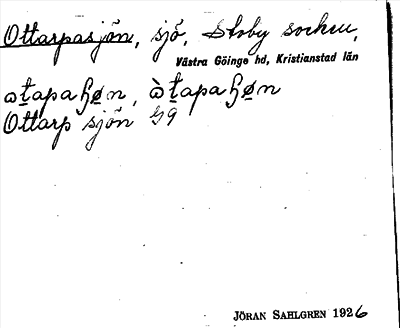 Ottarpasjön, sjö, Stoby socken,
Västra Göinge hd, Kristianstad län
Ottarp sjön G9
JÖRAN SAHLGREN 1926